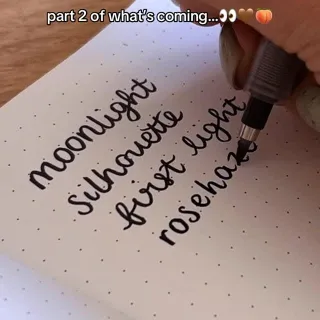 part 2 of what's coming...👀🤎🍑
moonlight
silhouette
first light